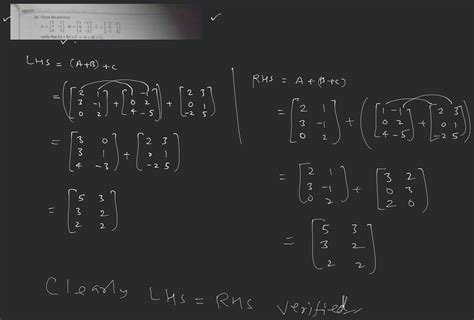 LHS = (A+B) + C
= ([2 1; 3 -1; 0 2] + [1 -1; 0 2; 4 -5]) + [2 3; 0 1; -2 5]
= [3 0; 3 1; 4 -3] + [2 3; 0 1; -2 5]
= [5 3; 3 2; 2 2]
RHS = A + (B+C)
= [2 1; 3 -1; 0 2] + ([1 -1; 0 2; 4 -5] + [2 3; 0 1; -2 5])
= [2 1; 3 -1; 0 2] + [3 2; 0 3; 2 0]
= [5 3; 3 2; 2 2]
Clearly LHS = RHS verified